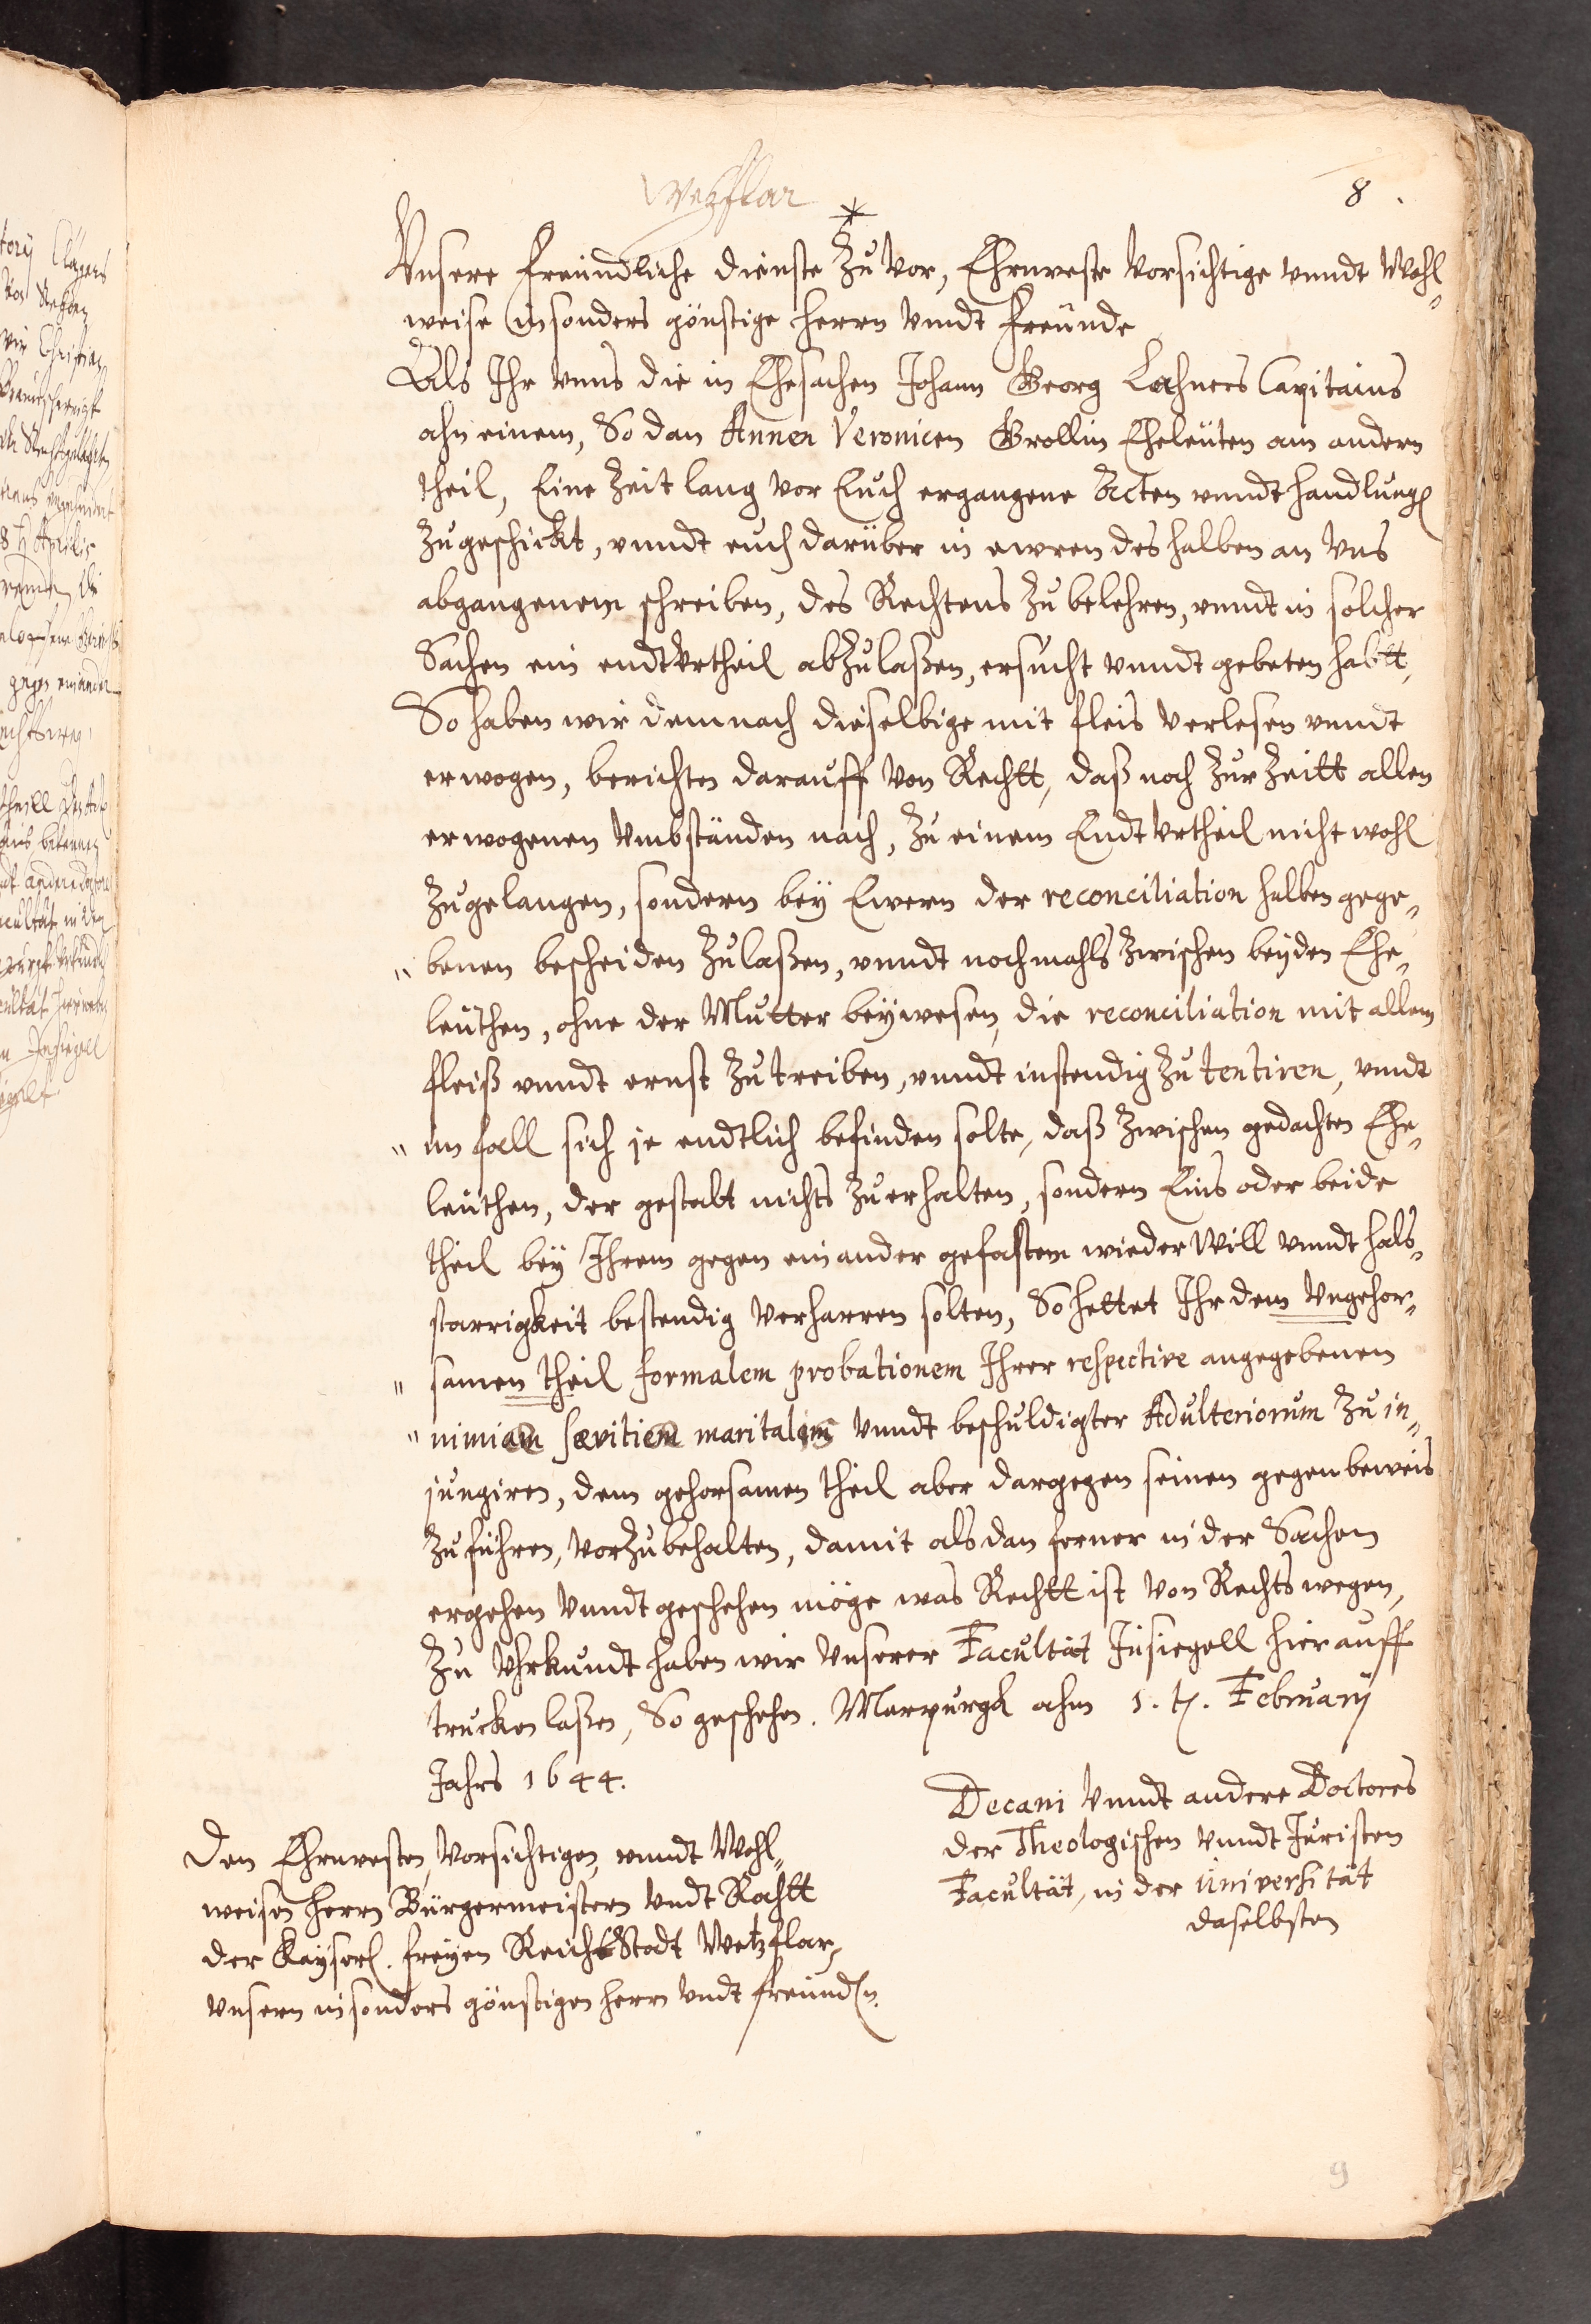 Wetzflar
8.
Unsere freundliche dienste zu vor, Ehrnveste Vorsichtige vnndt Wohl„
weise insonders günstige Herrn Vndt Freünde
Als Ihr vnns die in Ehesachen Johann Georg Lahners Capitains
ahn einem, So dan Annen Veronicen Grollin Eheleüten am andern
theil, Eine Zeit lang vor Euch ergangene Acten vnndt handlung
zugeschickt, vnndt euch darüber in ewren des halben an Vns
abgangenem schreiben, des Rechtens zu belehren, vnndt in solcher
Sachen ein endtVrtheil abzulaßen, ersucht vnndt gebeten habtt,
So haben wir demnach dieselbige mit fleis Verlesen vnndt
erwogen, berichten darauff Von Rechtt, daß noch zur Zeitt allen
erwogenen Vmbständen nach, zu einem EndtVrtheil nicht wohl
zugelangen, sondern bey Ewern der reconciliation halben gege„
" benen bescheiden zulaßen, vnndt nochmahls zwischen beyden Ehe„
leüthen, ohne der Mutter beywesen, die reconciliation mit allem
fleiß vnndt ernst zutreiben, vnndt instendig zu tentiren, vndt
" im fall sich je endtlich befinden solte, daß zwischen gedachten Ehe„
leüthen, der gestalt nichts zuerhalten, sondern Eins oder beide
theil bey Ihrem gegen einander gefastem wiederWill vnndt hals„
starrigkeit bestendig Verharren solten, So hettet Ihr dem Vngehor„
" samen theil formalem probationem Ihrer respective angegebenen
" nimiam sævitiem maritalem Vnndt beschuldigter Adulteriorum zu in„
jungiren, dem gehorsamen theil aber dargegen seinen gegenbeweis
zuführen, Vorzubehalten, damit als dan ferner in der Sachen
ergehen Vnndt geschehen möge was Rechtt ist Von Rechts wegen,
Zu Vhrkundt haben wir Vnserer Facultät Insiegell hierauff
trucken laßen, So geschehen. Marpurgk ahm 1. t. February
Jahrs 1644.
Decani Vnndt andere Doctores
der Theologischen Vnndt Juristen
Facultät, in der Universität
daselbsten
Den Ehrnvesten, Vorsichtigen, vnndt Wohl„
weisen Herrn Bürgermeistern Vndt Rahtt
der Kayserl. freyen Reichs Stadt Wetzflar,
Vnsern insonders günstigen herrn Vndt freünden.
9